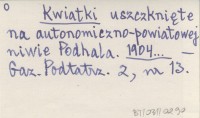 o
Kwiatki uszczknięte
na autonomiczno-powiatowej
niwie Podhala. 1904... —
Gaz. Podtatrz. 2, nr 13.